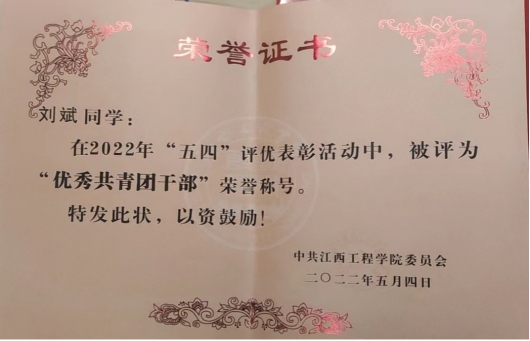 荣誉证书
刘斌同学：
在2022年“五四”评优表彰活动中，被评为
“优秀共青团干部”荣誉称号。
特发此状，以资鼓励！
中共江西工程学院委员会
二〇二二年五月四日